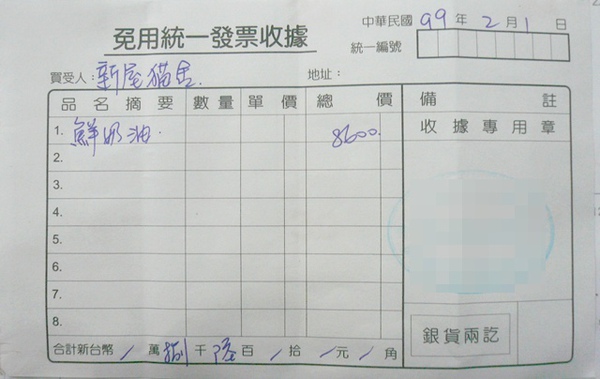 中華民國 99 年 2 月 1 日
免用統一發票收據
統一編號
買受人：新屋貓舍. 地址：
品名摘要 數量 單價 總價 備註
1. 鮮奶油. 8600.
收據專用章
2.
3.
4.
5.
6.
7.
8.
銀貨兩訖
合計新台幣 / 萬 捌 千 陸 百 / 拾 / 元 / 角